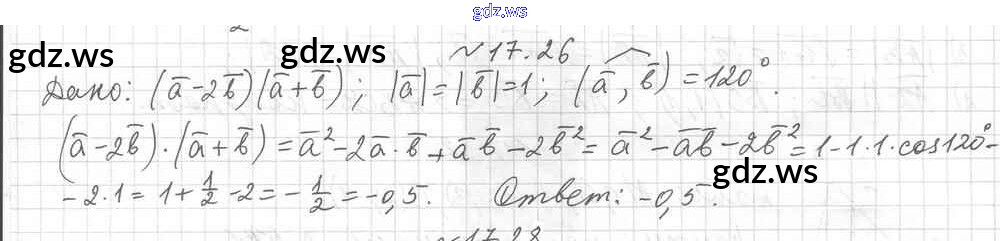 gdz.ws
2
gdz.ws gdz.ws №17.26
Дано: (a̅-2b̅)(a̅+b̅); |a̅|=|b̅|=1; (a̅,b̅)=120°.
(a̅-2b̅)·(a̅+b̅)=a̅²-2a̅·b̅+a̅b̅-2b̅²=a̅²-a̅b̅-2b̅²=1-1·1·cos120°-
gdz.ws
-2·1=1+1/2-2=-1/2=-0,5. Ответ: -0,5.
№17.28